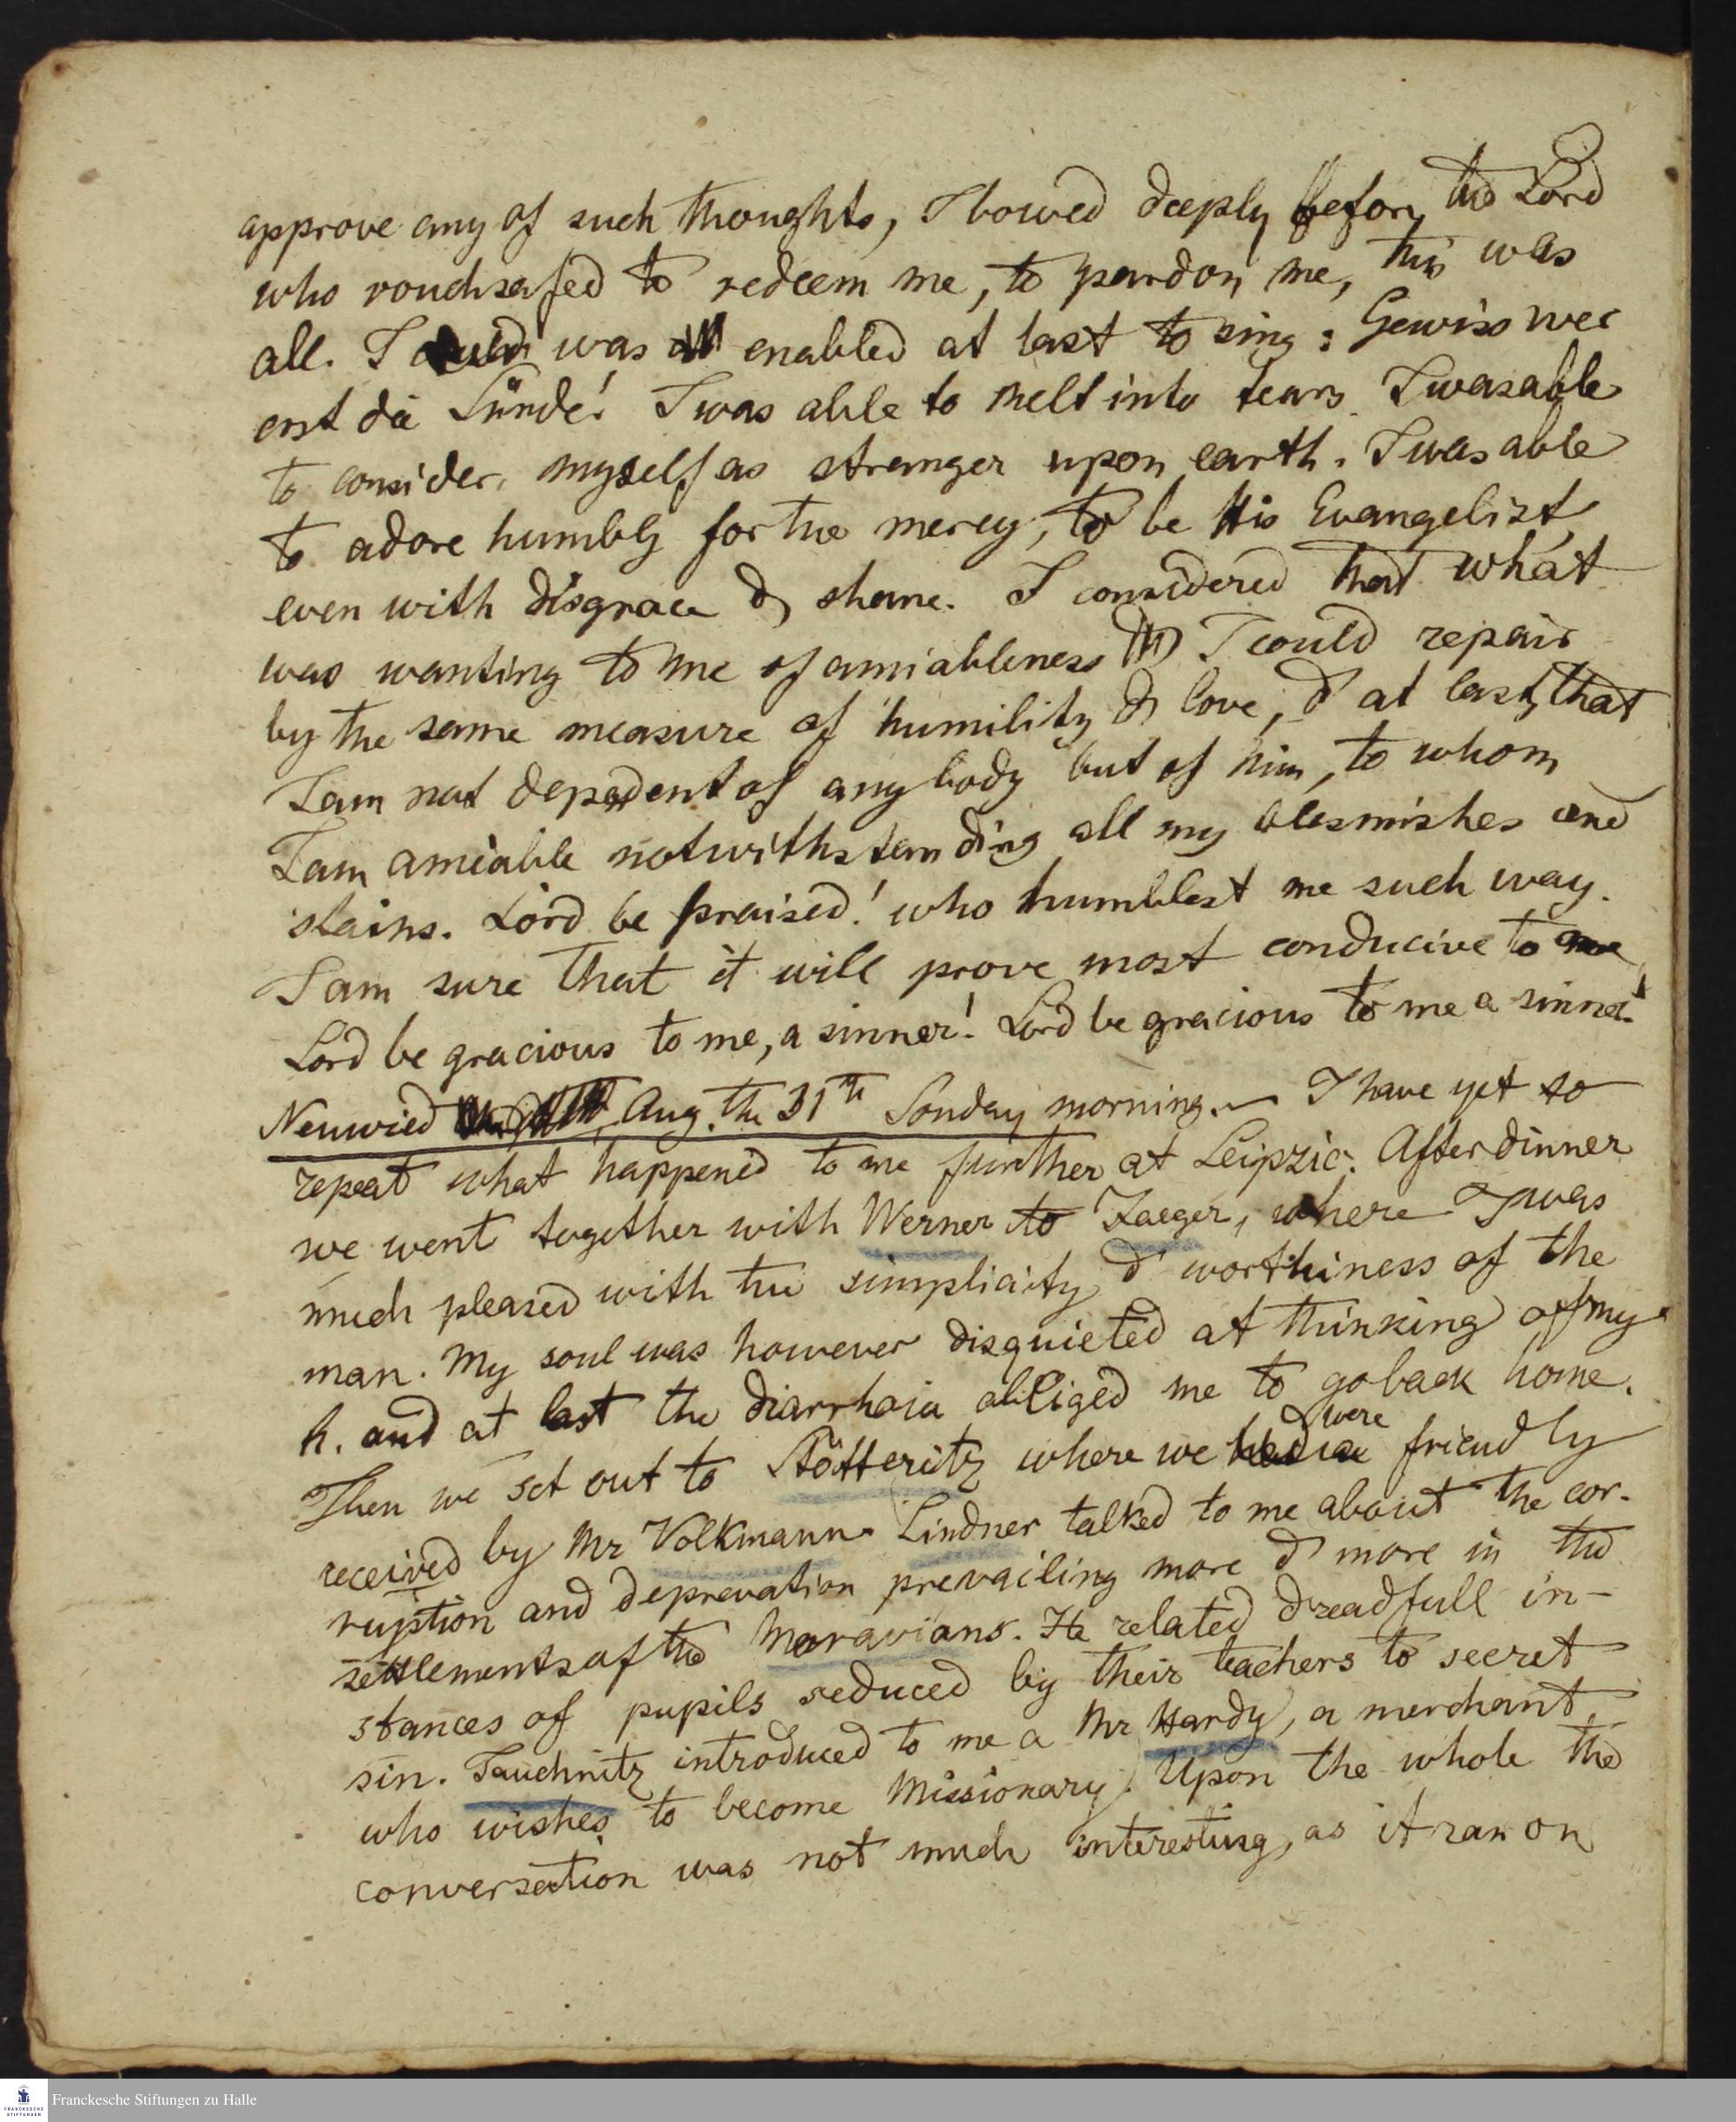 approve any of such thoughts, I bowed deeply before the Lord
who vouchsafed to redeem me, to pardon me, this was
all. I could was enabled at last to sing: Gewiss wer
erst die Sünde! I was able to melt into tears. I was able
to consider myself as stranger upon earth. I was able
to adore humbly for the mercy, to be His Evangelist,
even with disgrace & shame. I considered that what
was wanting to me of amiableness I could repair
by the same measure of humility & love, & at last, that
I am not dependent of any body but of him, to whom
I am amiable notwithstanding all my blesmishes and
stains. Lord be praised! who humblest me such way.
I am sure that it will prove most conducive to me
Lord be gracious to me, a sinner! Lord be gracious to me a sinner!
Neuwied Aug. the 31th Sonday morning. — I have yet to
repeat what happened to me further at Leipzic. After dinner
we went together with Werner to Jaeger, where I was
much pleased with the simplicity & worthiness of the
man. My soul was however disquieted at thinking of my
h. and at last the diarrhoia obliged me to go back home.
Then we set out to Stötteritz where we were friendly
received by Mr Volkmann. Lindner talked to me about the cor-
ruption and depravation prevailing more & more in the
settlements of the Moravians. He related dreadfull in-
stances of pupils seduced by their teachers to secret
sin. Tauchnitz introduced to me a Mr Hardy, a merchant,
who wishes to become Missionary. Upon the whole the
conversation was not much interesting, as it ran on
Franckesche Stiftungen zu Halle